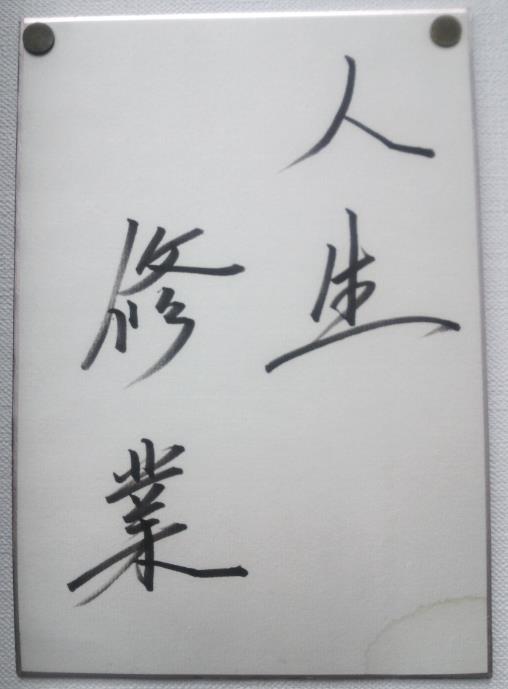 人生
修業